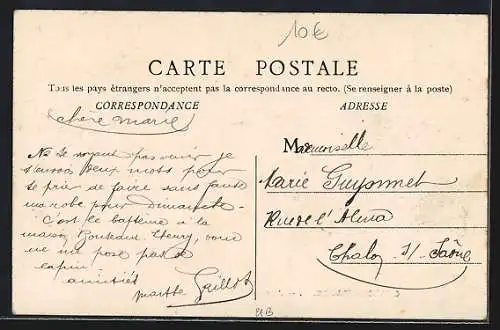 10€
CARTE POSTALE
Tous les pays étrangers n'acceptent pas la correspondance au recto. (Se renseigner à la poste)
CORRESPONDANCE
ADRESSE
chère Marie
Ne te voyant pas venir je
t'envois deux mots pour
te prier de faire sans faute
ma robe pour Dimanche.
C'est le baptême à la
maison
ne me pose pas de
amitiés
Marthe Gaillot
Mademoiselle
Marie Guyonnet
Rue de l'Alma
Chalon s/ Saône